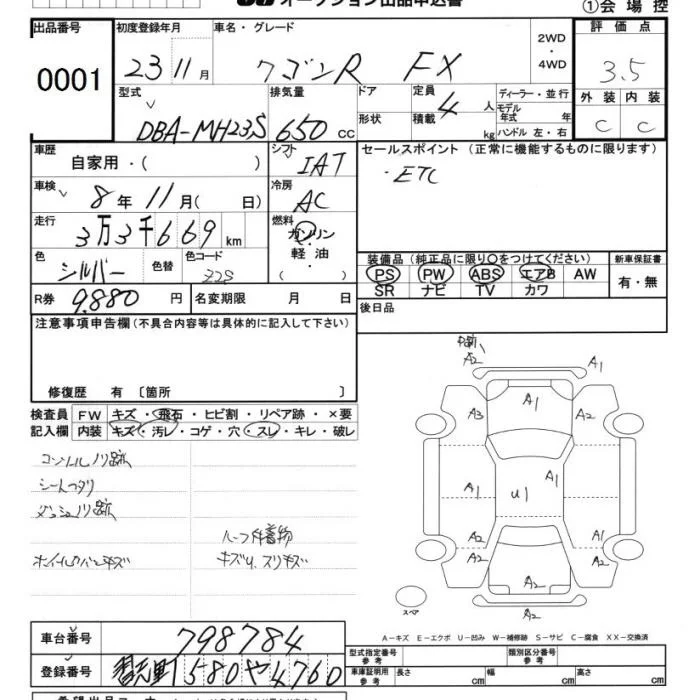 オークション出品申込書
①会場控
出品番号
0001
初度登録年月
23 11月
車名・グレード
ワゴンR FX
2WD
・
4WD
評価点
3.5
外装 内装
C C
型式
DBA-MH23S
排気量
650 cc
ドア
形状
定員
4人
積載
kg
ディーラー・並行
モデル
年式 年
ハンドル 左・右
車歴
自家用・( )
シフト
IAT
セールスポイント(正常に機能するものに限ります)
・ETC
車検
8年11月( 日)
冷房
AC
走行
3万3千669km
燃料
ガソリン
軽油
( )
色
シルバー
色替
色コード
Z2S
装備品(純正品に限り○をつけてください)
PS PW ABS エアB AW
SR ナビ TV カワ
新車保証書
有・無
R券
9,880円
名変期限 月 日
後日品
注意事項申告欄(不具合内容等は具体的に記入して下さい)
修復歴 有〔箇所 〕
検査員
記入欄
FW キズ・飛石・ヒビ割・リペア跡・×要
内装 キズ・汚レ・コゲ・穴・スレ・キレ・破レ
シートヘタリ
ダッシュノリ跡
ルーフ付着物
キズU、スリキズ
A2
A1
A1
A3
A2
A1
U1
A1
A1
A2
A1
A2
A2
A2
A2
スペア
A-キズ E-エクボ U-凹み W-補修跡 S-サビ C-腐食 XX-交換済
車台番号
798784
登録番号
580 や 4760
型式指定番号
参考
類別区分番号
参考
車庫証明用
参考
長さ cm
幅 cm
高さ cm